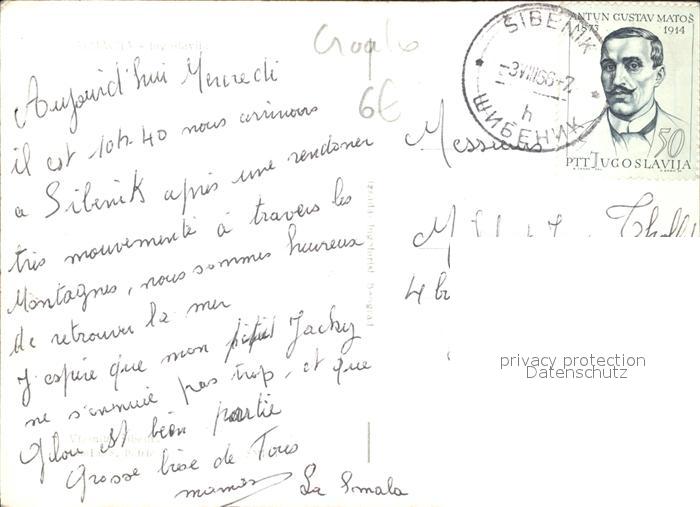 Croatie
6€
ŠIBENIK
-3VIII66-7
h
ШИБЕНИК
ANTUN GUSTAV MATOŠ
1873 1914
50
PTT JUGOSLAVIJA
Aujourd'hui Mercredi
il est 10h.40 nous arrivons
a Sibenik après une randonée
très mouvementé à travers les
Montagnes, nous sommes heureux
de retrouver la mer
J'espère que mon petit Jacky
ne s'ennuie pas trop, et que
est bien partie
Grosse bise de Tous
maman La Smala
Messieurs
M
4 b
privacy protection
Datenschutz